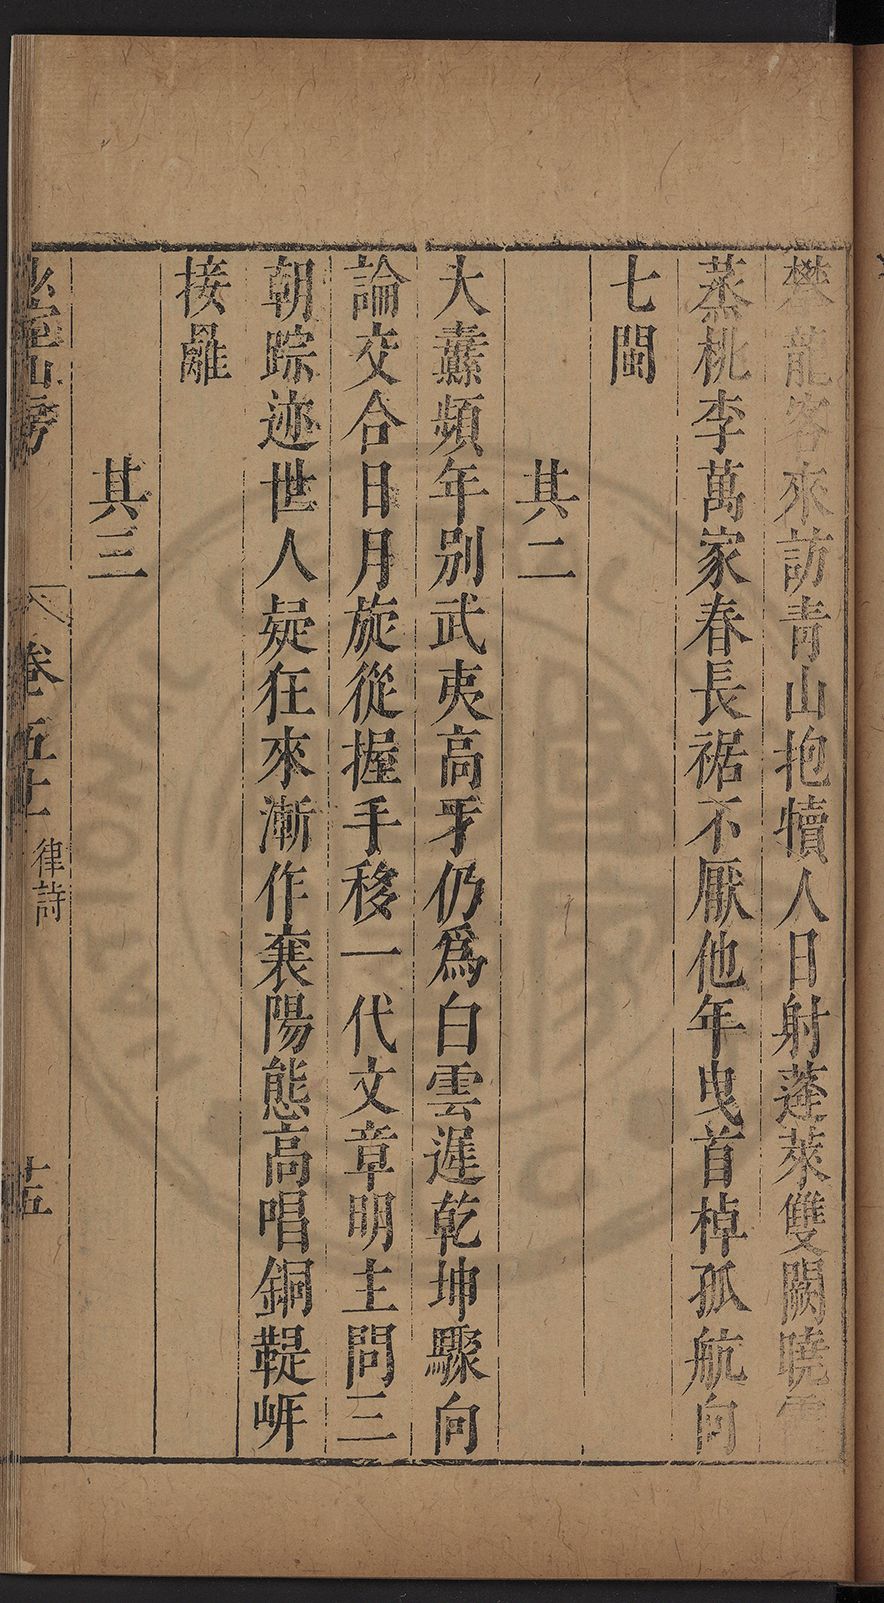 樊龍客來訪青山抱犢人日射蓬萊雙闕曉雲
蒸桃李萬家春長裾不厭他年曳首棹孤航向
七閩
其二
大纛頻年別武夷高牙仍爲白雲遲乾坤驟向
論交合日月旋從握手移一代文章明主問三
朝踪迹世人疑狂來漸作襄陽態高唱銅鞮岸
接䍦
其三
卷五十 律詩